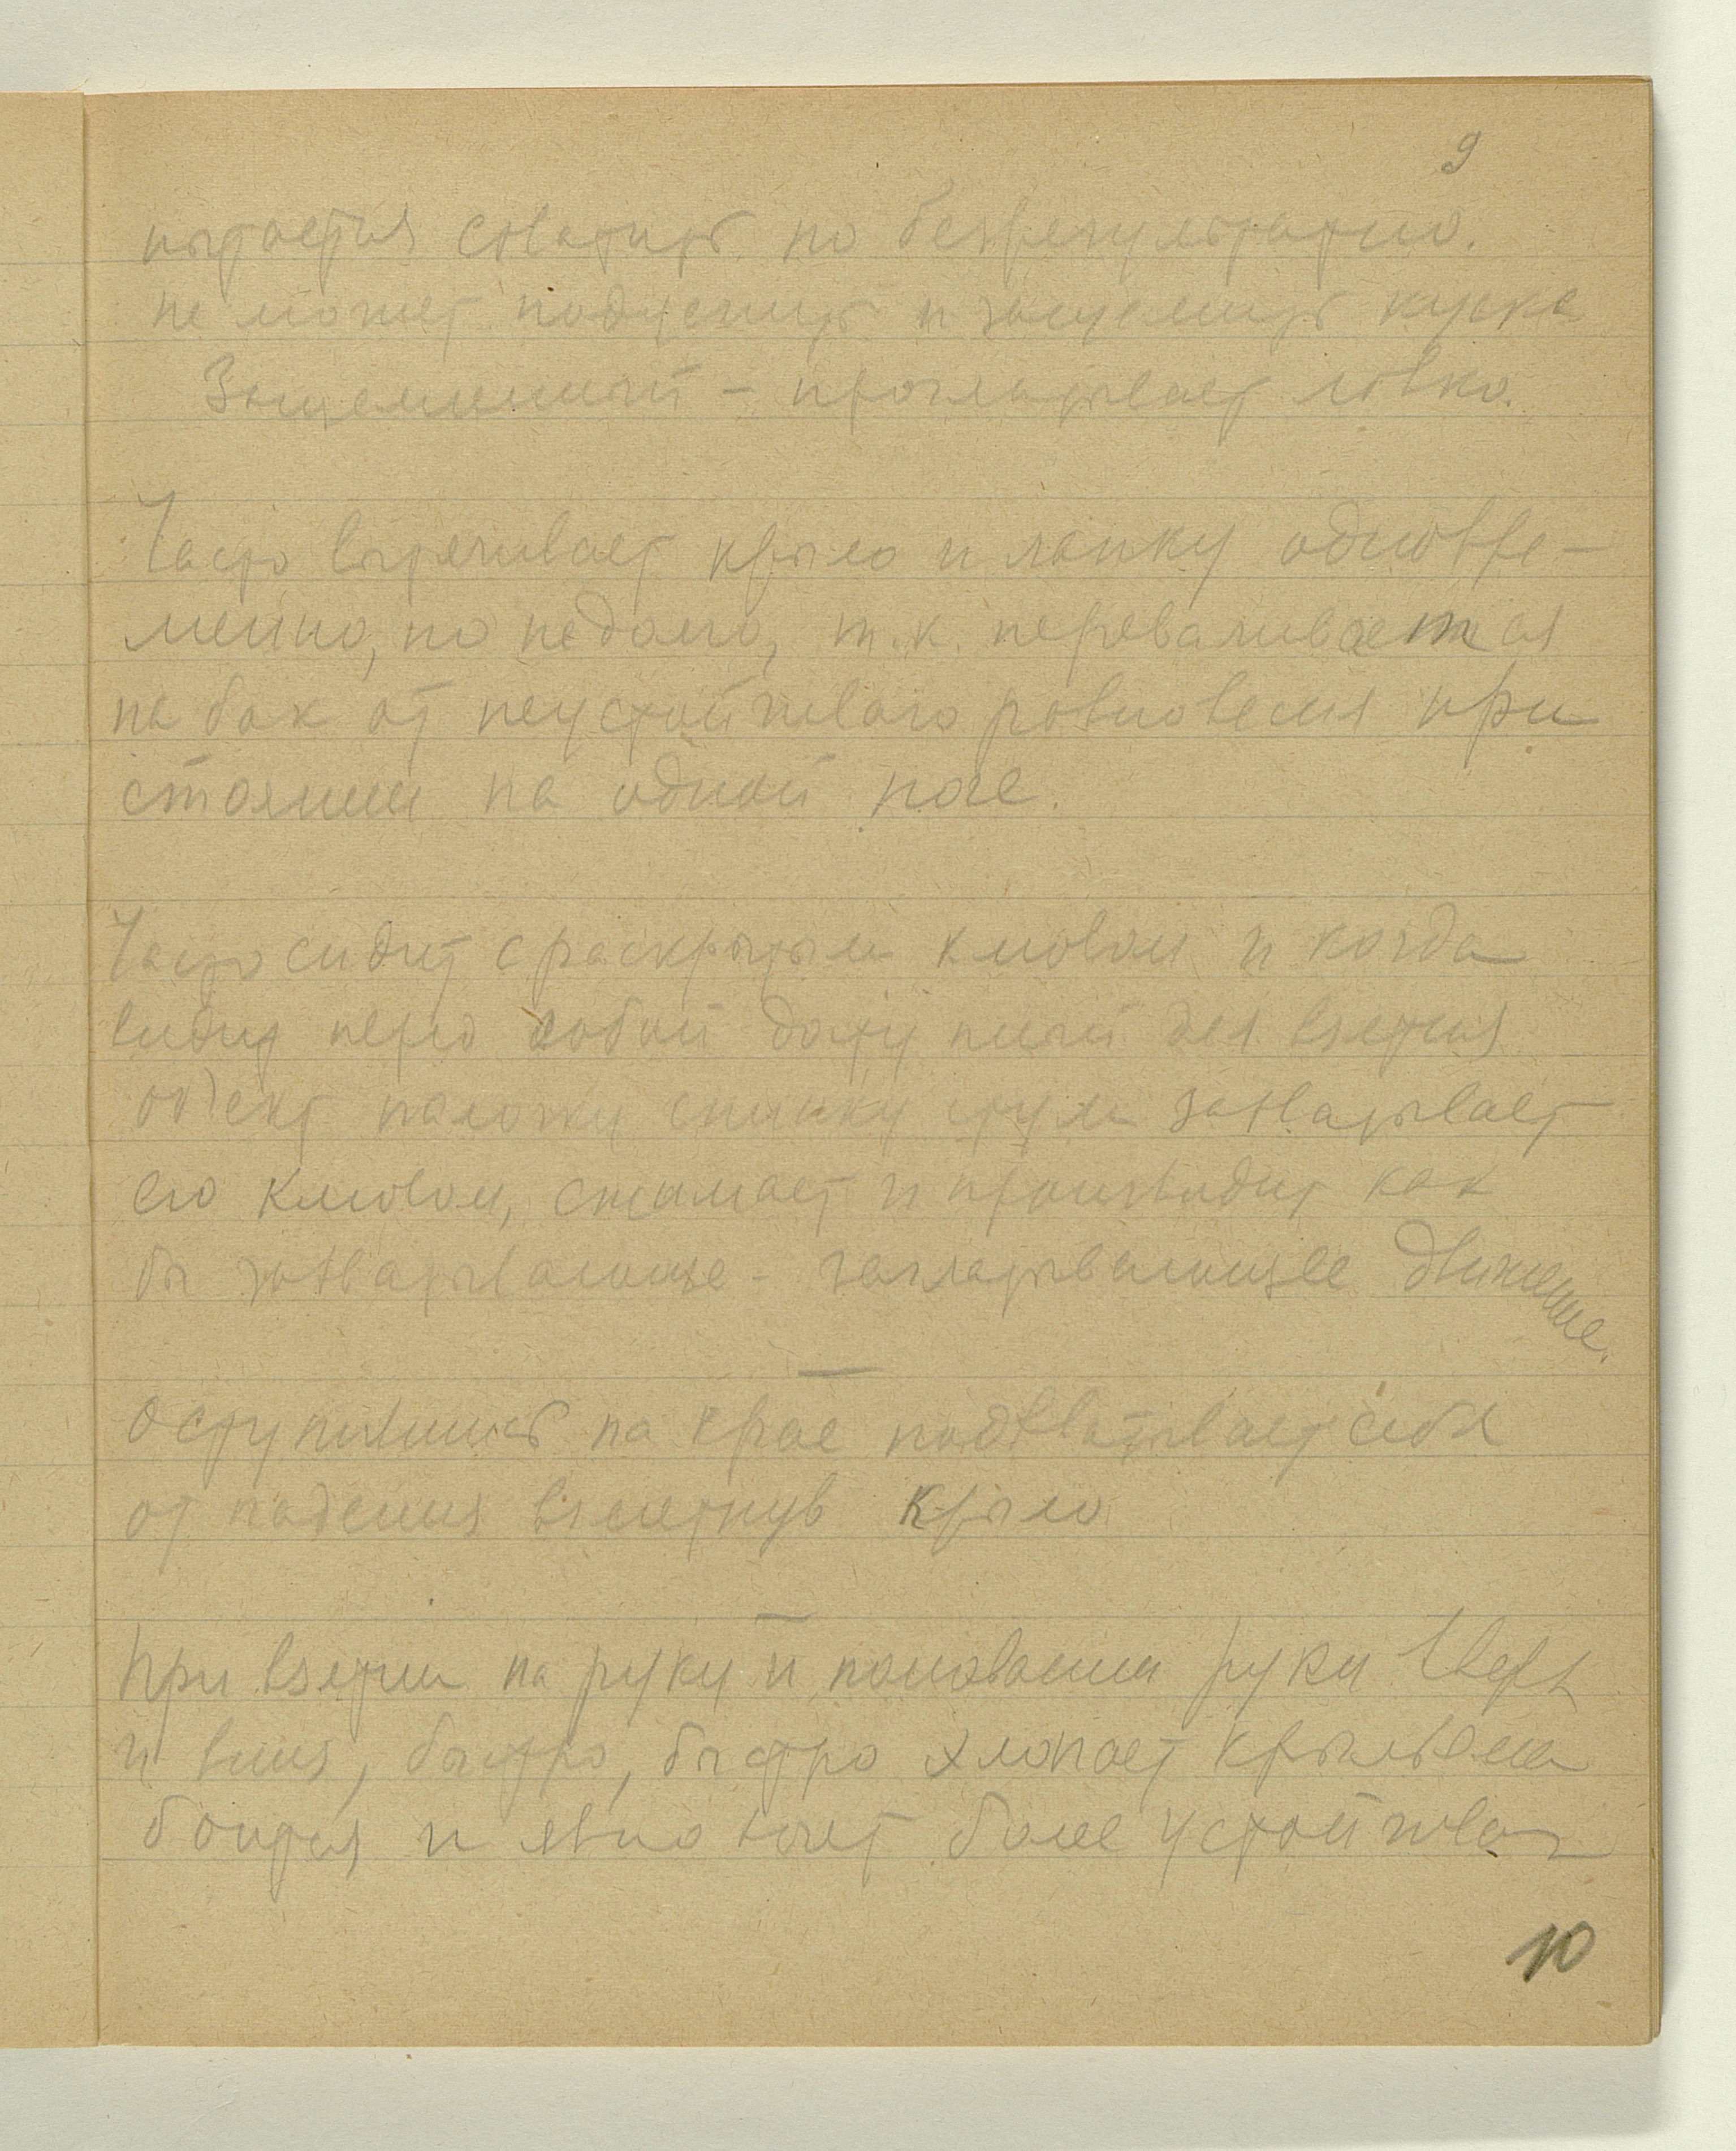 9
пытается схватить но безрезультатно.
не может подцепить и защемить куска
Защемленный – проглатывает ловко.
Часто вытягивает крыло и лапку одновре-
менно, но недолго, т.к. переваливается
на бок от неустойчивого равновесия при
стоянии на одной ноге.
Часто сидит с раскрытым клювом и когда
видит перед собой доступный для взятия
объект палочку спинку стула захватывает
его клювом, сжимает и производит как
бы захватывающее - заглатывающее движение.
Оступившись на крае подхватывает себя
от падения взметнув крыло
При взятии на руку и поковании руки вверх
и вниз, быстро, быстро хлопает крыльями
боится и явно хочет более устойчивое
10